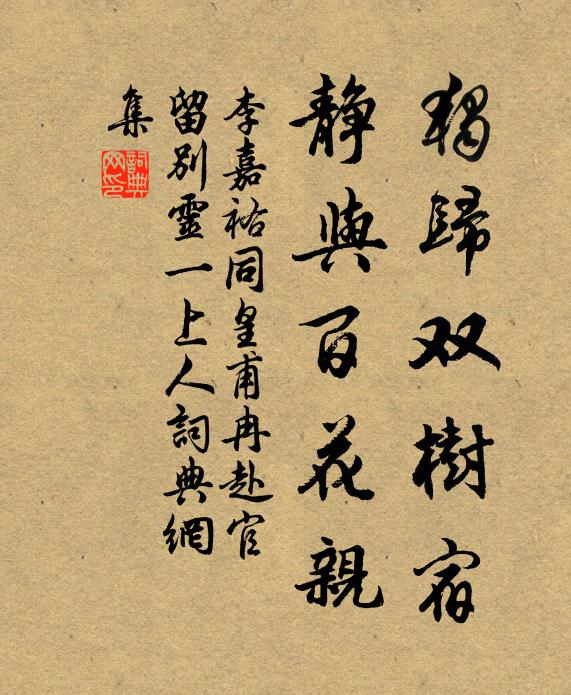 獨歸双樹宿
靜與百花親
李嘉祐同皇甫冉赴官
留別靈一上人詞典網
集
詞典
网印